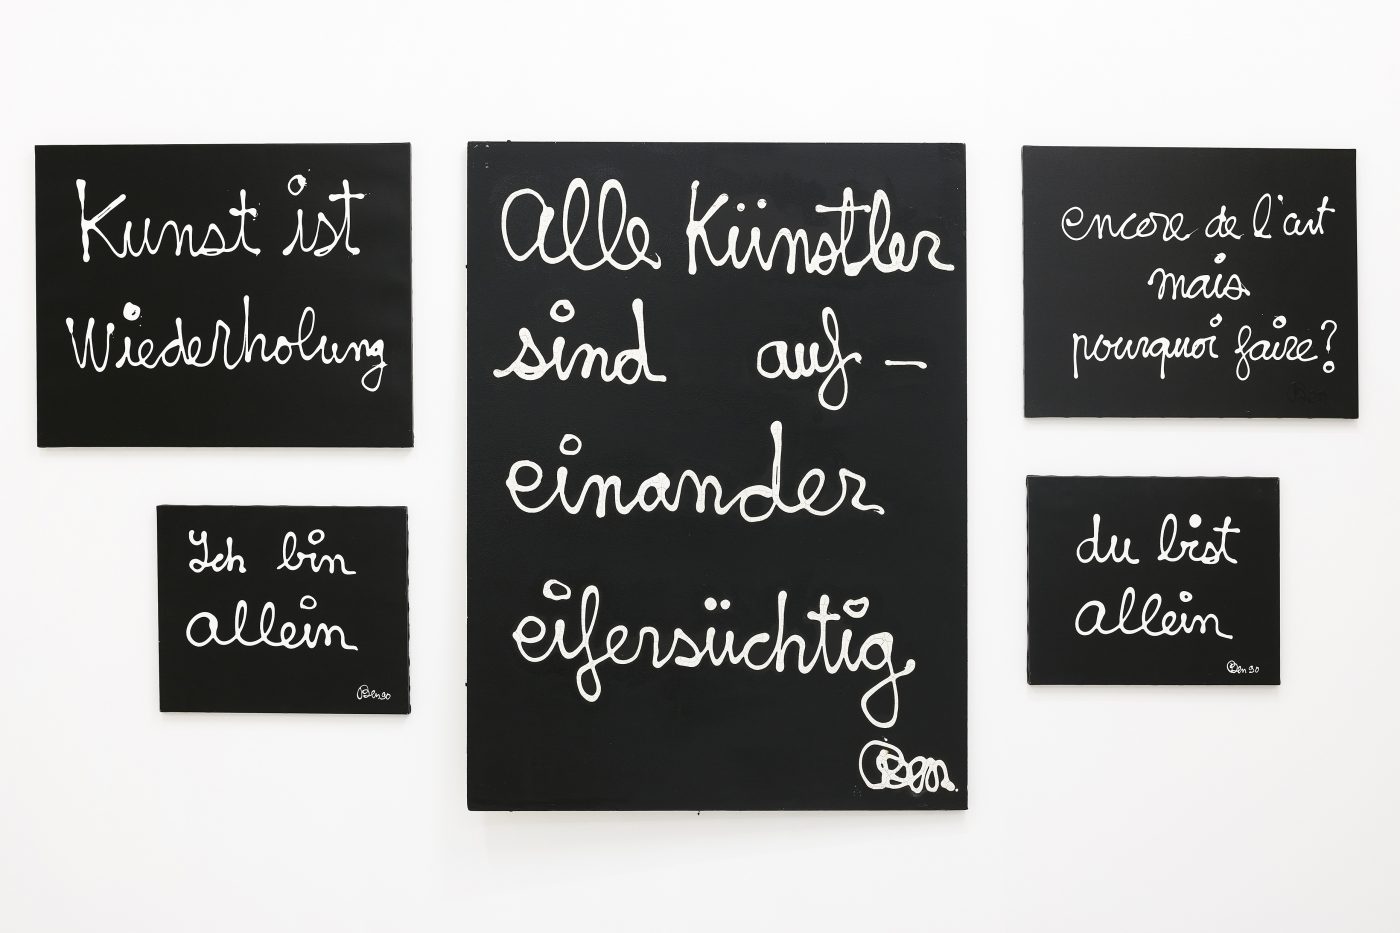 Kunst ist
Wiederholung
Ich bin
allein
Ben 90
Alle Künstler
sind auf-
einander
eifersüchtig
Ben.
encore de l'art
mais
pourquoi faire?
Ben
du bist
allein
Ben 90